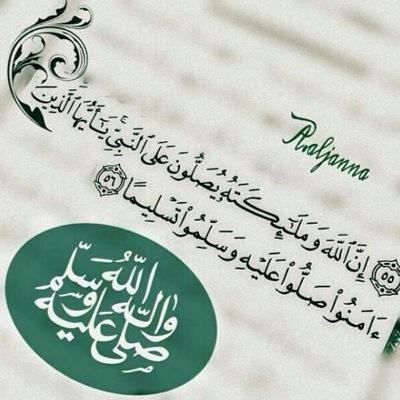 ٥٥ إِنَّ ٱللَّهَ وَمَلَٰٓئِكَتَهُۥ يُصَلُّونَ عَلَى ٱلنَّبِيِّ ۚ يَٰٓأَيُّهَا ٱلَّذِينَ
ءَامَنُوا۟ صَلُّوا۟ عَلَيْهِ وَسَلِّمُوا۟ تَسْلِيمًا ٥٦
صلى الله عليه وآله وسلم